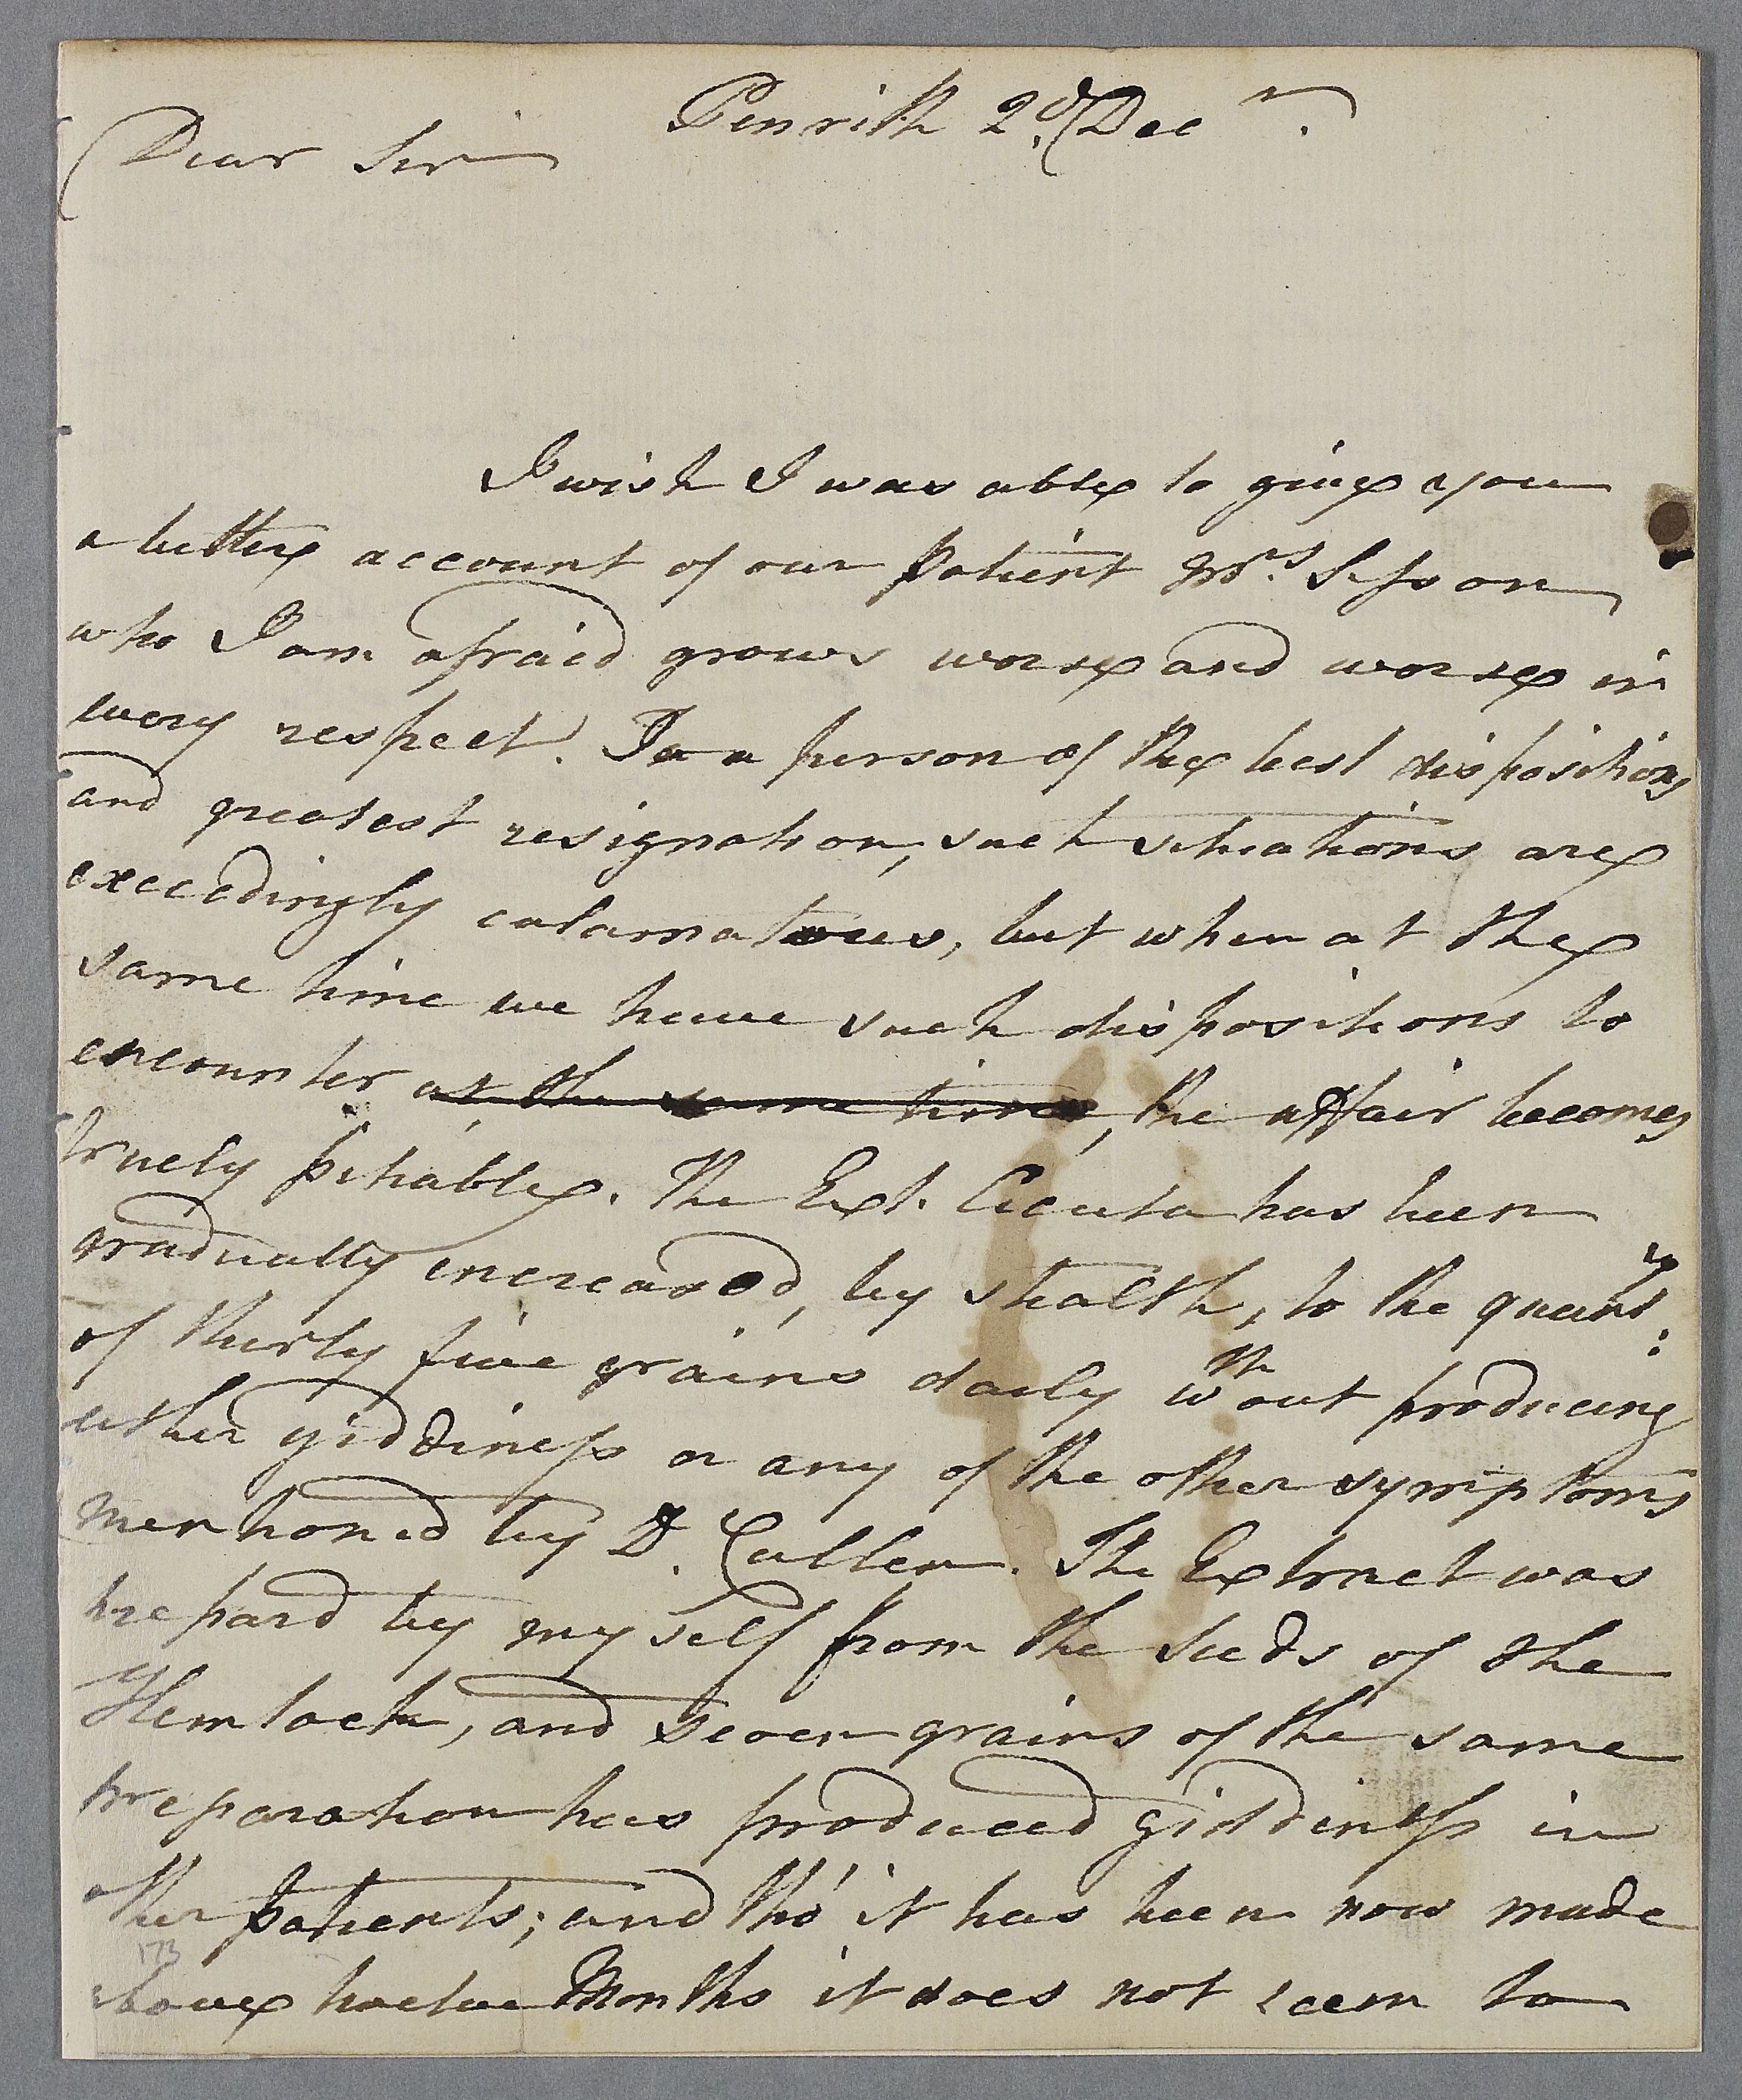 Penrith 2d. Decr.
Dear Sir
I wish I was able to give you
a better account of our patient Mrs. Sisson
who I am afraid grows worse and worse in
every respect. To a person of the best dispositions
and greatest resignation, such situations are
exceedingly calamatous, but when at the
same time we have such dispositions to
encounter at the same time, the affair becomes
truely pitiable. The Ext. Cicuta has been
gradually increased, by stealth, to the quanty:
of thirty five grains daily wthout producing
either giddiness or any of the other symptoms
mentioned by D. Cullen. The Extract was
prepard by myself from the seeds of the
Hemlock, and seven grains of the same
preparation has produced giddiness in
other patients; and tho' it has been now made
above twelve Months it does not seem to
173